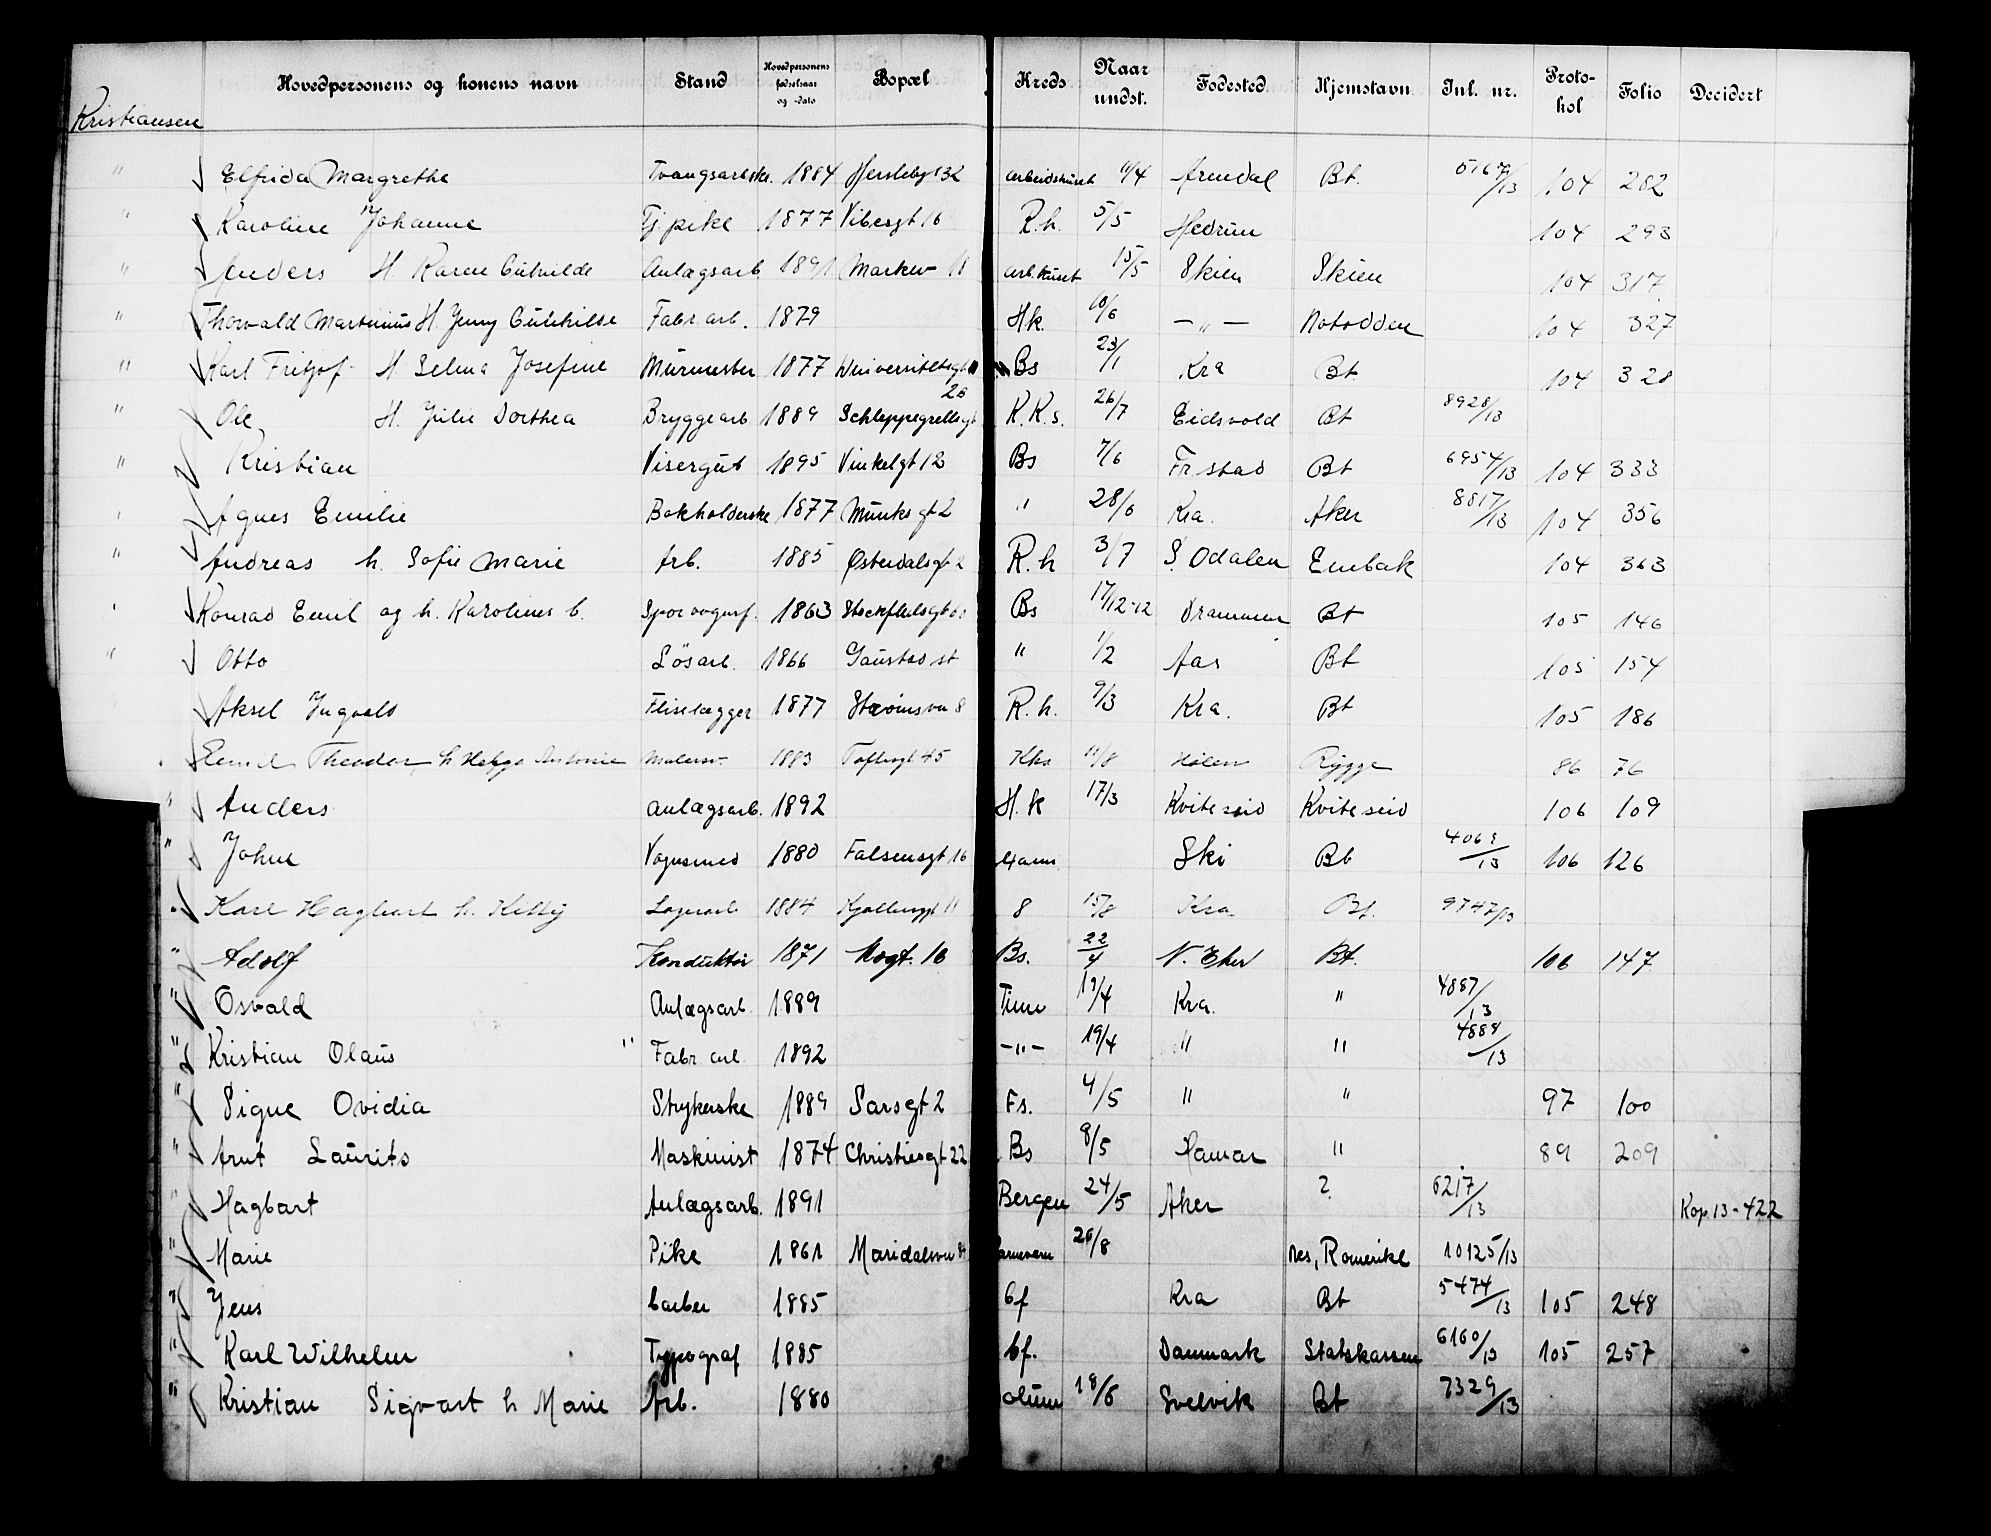 Hovedpersonens og konens navn Stand Hovedpersonens fødselsaar og -dato Bopæl Kreds Naar undst. Fødested Hjemstavn Inl. nr. Proto- kol Folio Decidert
Kristiansen
" Elfrida Margrethe Tvangsarbske. 1884 Herslebgt 32 arbeidshuset 11/4 Arendal Bt. 5167/13 104 282
" Karoline Johanne Tj.pike 1877 Vibesgt 16 R.h. 5/5 Hedrum 104 293
" Anders H. Karen Gunhilde Anlægsarb 1891 Markv 18 arb.huset 15/5 Skien Skien 104 317
" Thorvald Martinius H. Jenny Gunhilde Fabr. arb. 1879 Hk. 10/6 —"— Notodden 104 327
" Karl Fritjof H Selma Josefine Murmester 1877 Universitetsgt Bs 23/1 Kra Bt. 104 328
" Ole H. Julie Dorthea Bryggearb 1889 Schleppegrellsgt 28 K.K.s. 26/7 Eidsvold Bt 8928/13
" Kristian Visergut 1895 Vinkelgt 12 Bs 7/6 Fr.stad Bt 6954/13 104 333
" Agnes Emilie Bokholderske 1877 Munks gt 2 " 28/6 Kra. Aker 8817/13 104 356
" Andreas h. Sofie Marie Arb. 1885 Østerdalsgt 2 R.h 3/7 S. Odalen Enebak 104 363
" Konrad Emil og h. Karolines b. Sporvognsf. 1863 Stockflethsgt Bs 17/12-12 Drammen Bt 105 146
" Otto Løsarb. 1866 Gaustad st " 1/2 Aas Bt 105 154
Aksel Ingvald Fliselægger 1877 Stavinsvn 8 R.h. 9/3 Kra. Bt 105 186
Emil Theodor h Helga Antonie Malersv. 1883 Toftesgt 45 Kks 11/8 Hølen Rygge 86 76
" Anders Anlægsarb. 1892 H.k 17/3 Kviteseid Kviteseid 106 109
" John Vognsmed 1880 Falsensgt 16 Ski Bt 4069/13 106 126
" Karl Hagbart h. Kitty Lagerarb 1884 Kjølbergt 11 8 15/8 Kra Bt. 9747/13
" Adolf Konduktør 1871 Mogt. 16 Bs. 22/4 N. Eker Bt. 106 147
" Osvald Anlægsarb. 1889 Tinn 19/4 Kra. " 4887/13
" Kristian Olaus " Fabr. arb. 1892 —"— 19/4 " " 4888/13
" Signe Ovidia Strykerske 1889 Sarsgt 2 Fs. 4/5 " " 97 100
" Arnt Laurits Maskinist 1874 Christiesgt 22 Bs 8/5 Hamar " 89 209
" Hagbart Anlægsarb. 1891 Bergen 24/5 Aker ? 6217/13 Kop. 13-422
" Marie Pike 1861 Maridalsvn Barnevern 26/8 Nes, Romerike 10125/13
" Jens barber 1885 bf Kra Bt 5474/13 105 248
" Karl Wilhelm Typograf 1885 bf. Danmark Statskassen 6160/13 105 257
" Kristian Sigvart h Marie Arb. 1880 18/6 Svelvik Bt 7329/13